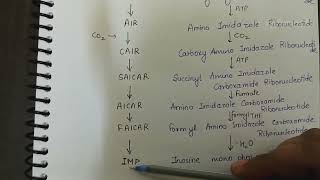 ATP
AIR Amino Imidazole Ribonucleotide
CO₂ → CO₂
CAIR Carboxy Amino Imidazole Ribonucleotide
ATP
SAICAR Succinyl Amino Imidazole
Carboxamide Ribonucleotide
Fumarate
AICAR Amino Imidazole Carboxamide
Ribonucleotide
formyl THF
FAICAR Formyl Amino Imidazole Carboxamide
Ribonucleotide
H₂O
IMP Inosine mono